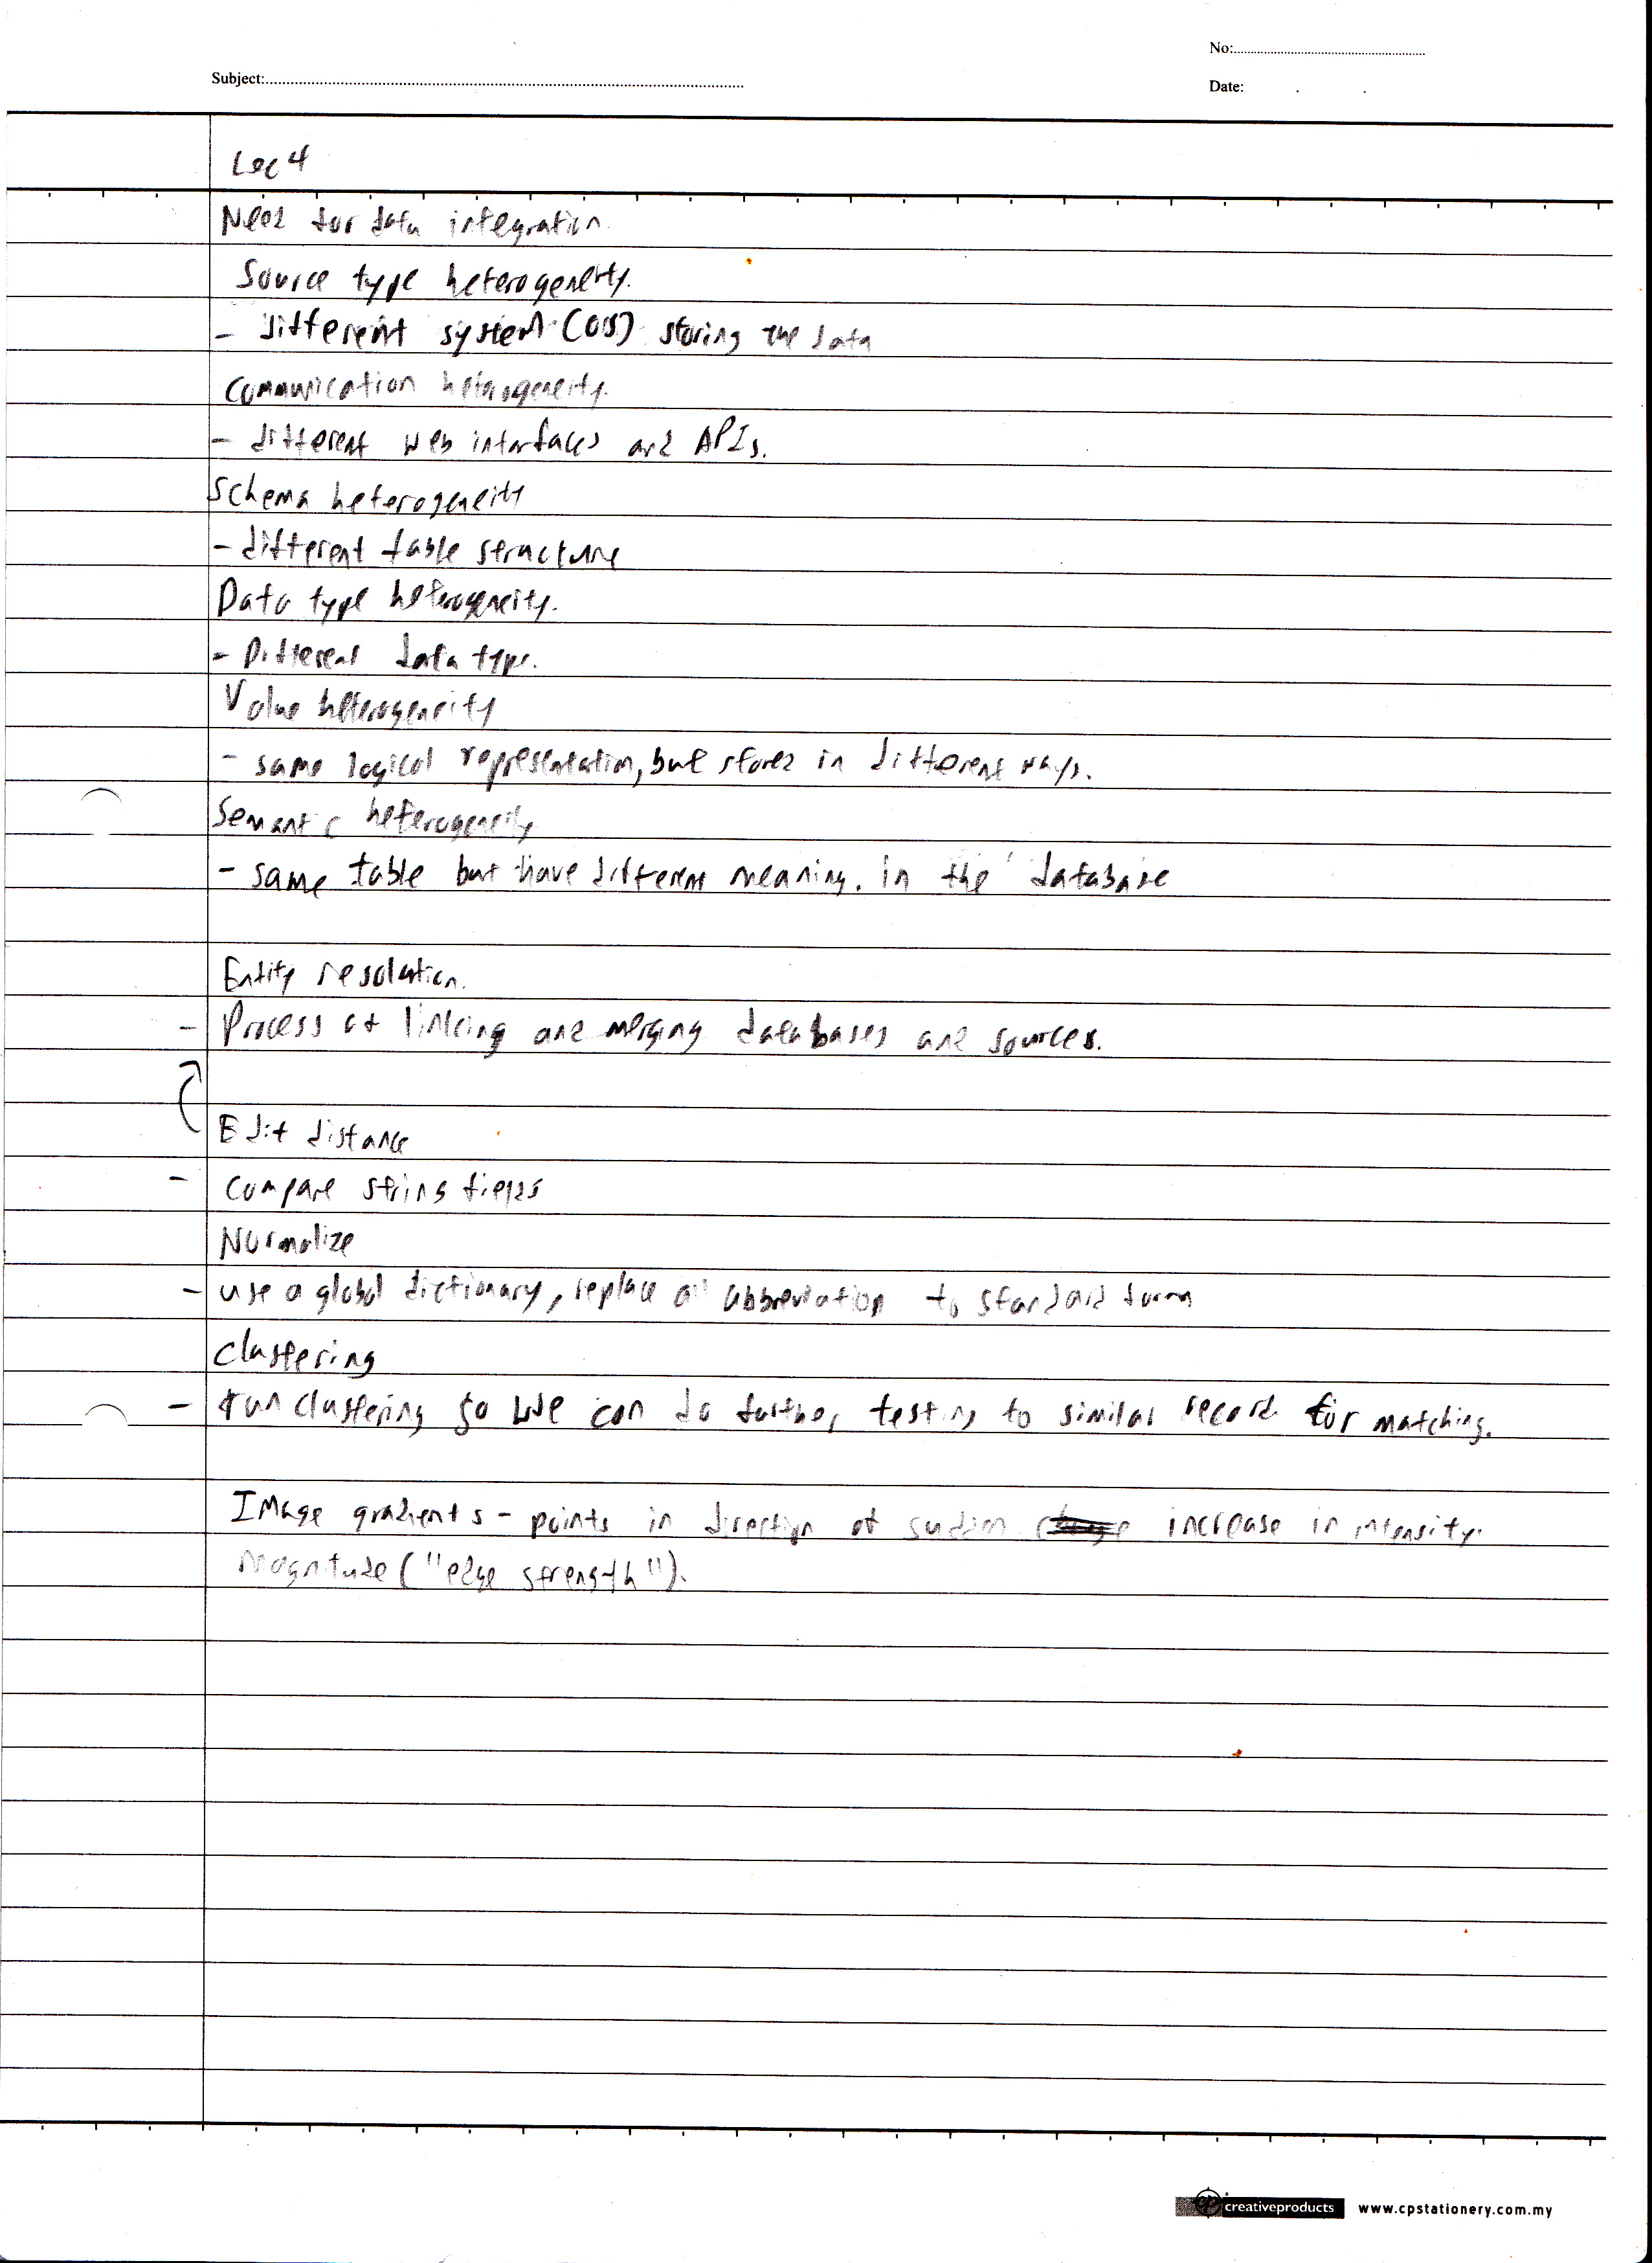 No:
Subject:
Date:
Lec 4
Need for data integration.
Source type heterogeneity.
- different system storing the data
Communication heterogeneity.
- different web interfaces and APIs.
Schema heterogeneity
- different table structure
Data type heterogeneity.
- Different data type.
Value heterogeneity
- same logical representation, but stored in different ways.
Semantic heterogeneity
- same table but have different meaning. in the database
Entity resolution.
- Process of linking and merging databases and sources.
Edit distance
- compare string fields
Normalize
- use a global dictionary, replace all abbreviation to standard form
Clustering
- run clustering so we can do further testing to similar record for matching.
Image gradients - points in direction of increase in intensity.
Magnitude ("edge strength").
cp creativeproducts www.cpstationery.com.my